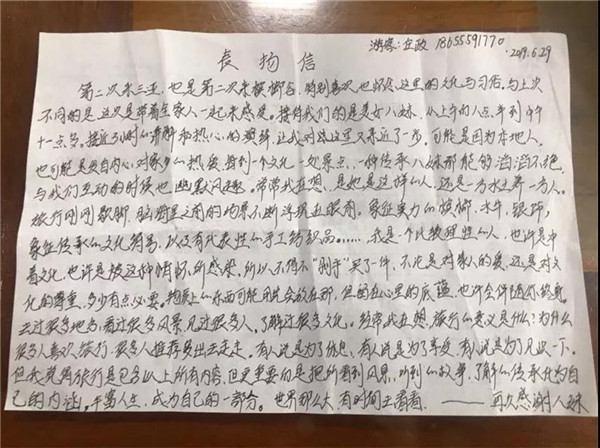 游客: 
18655591770
2019.6.29
表扬信
第二次来三亚,也是第二次来槟榔谷,特别喜欢也好感这里的文化与习俗,与上次
不同的是这次是带着全家人一起来感受。接待我们的是美女八妹,从上午的八点半到中午
十一点多。接近3小时的讲解和热心的演绎,让我对这里又亲近了一步。可能是因为本地人,
也可能是发自内心对家乡的热爱,每到一个文化一处景点,一件传承八妹都能够滔滔不绝,
与我们互动的时候也幽默风趣,常常我在想,是她是这样的人,还是一方水土养一方人。
旅行刚刚歇脚,脑海里之前的场景不断浮现在眼前。象征实力的槟榔,水牛,银饰,
象征传承的文化符号,以及有代表性的手工纺织品……,我是个比较理性的人,也许是中
着文化,也许是被这种情怀所感染,所以不得不"剁手"买了一件,不光是对家人的爱,还是对文
化的尊重,多少有点必要。物质上的东西可能用完会放在那,但留在心里的底蕴,也许会伴随你终身。
去过很多地方,看过很多风景,见过很多人,了解过很多文化。经常我在想,旅行的意义是什么?为什么
很多人喜欢旅行,很多人推荐多出去走走,有人说是为了休息,有人说是为了享受,有人说是为了见识一下。
但我觉得旅行是包含以上所有内容,但更重要的是把所看到风景,听到的故事,了解的传承化为自
己的内涵。丰富人生,成为自己的一部分。世界那么大,有时间去看看。——再次感谢八妹